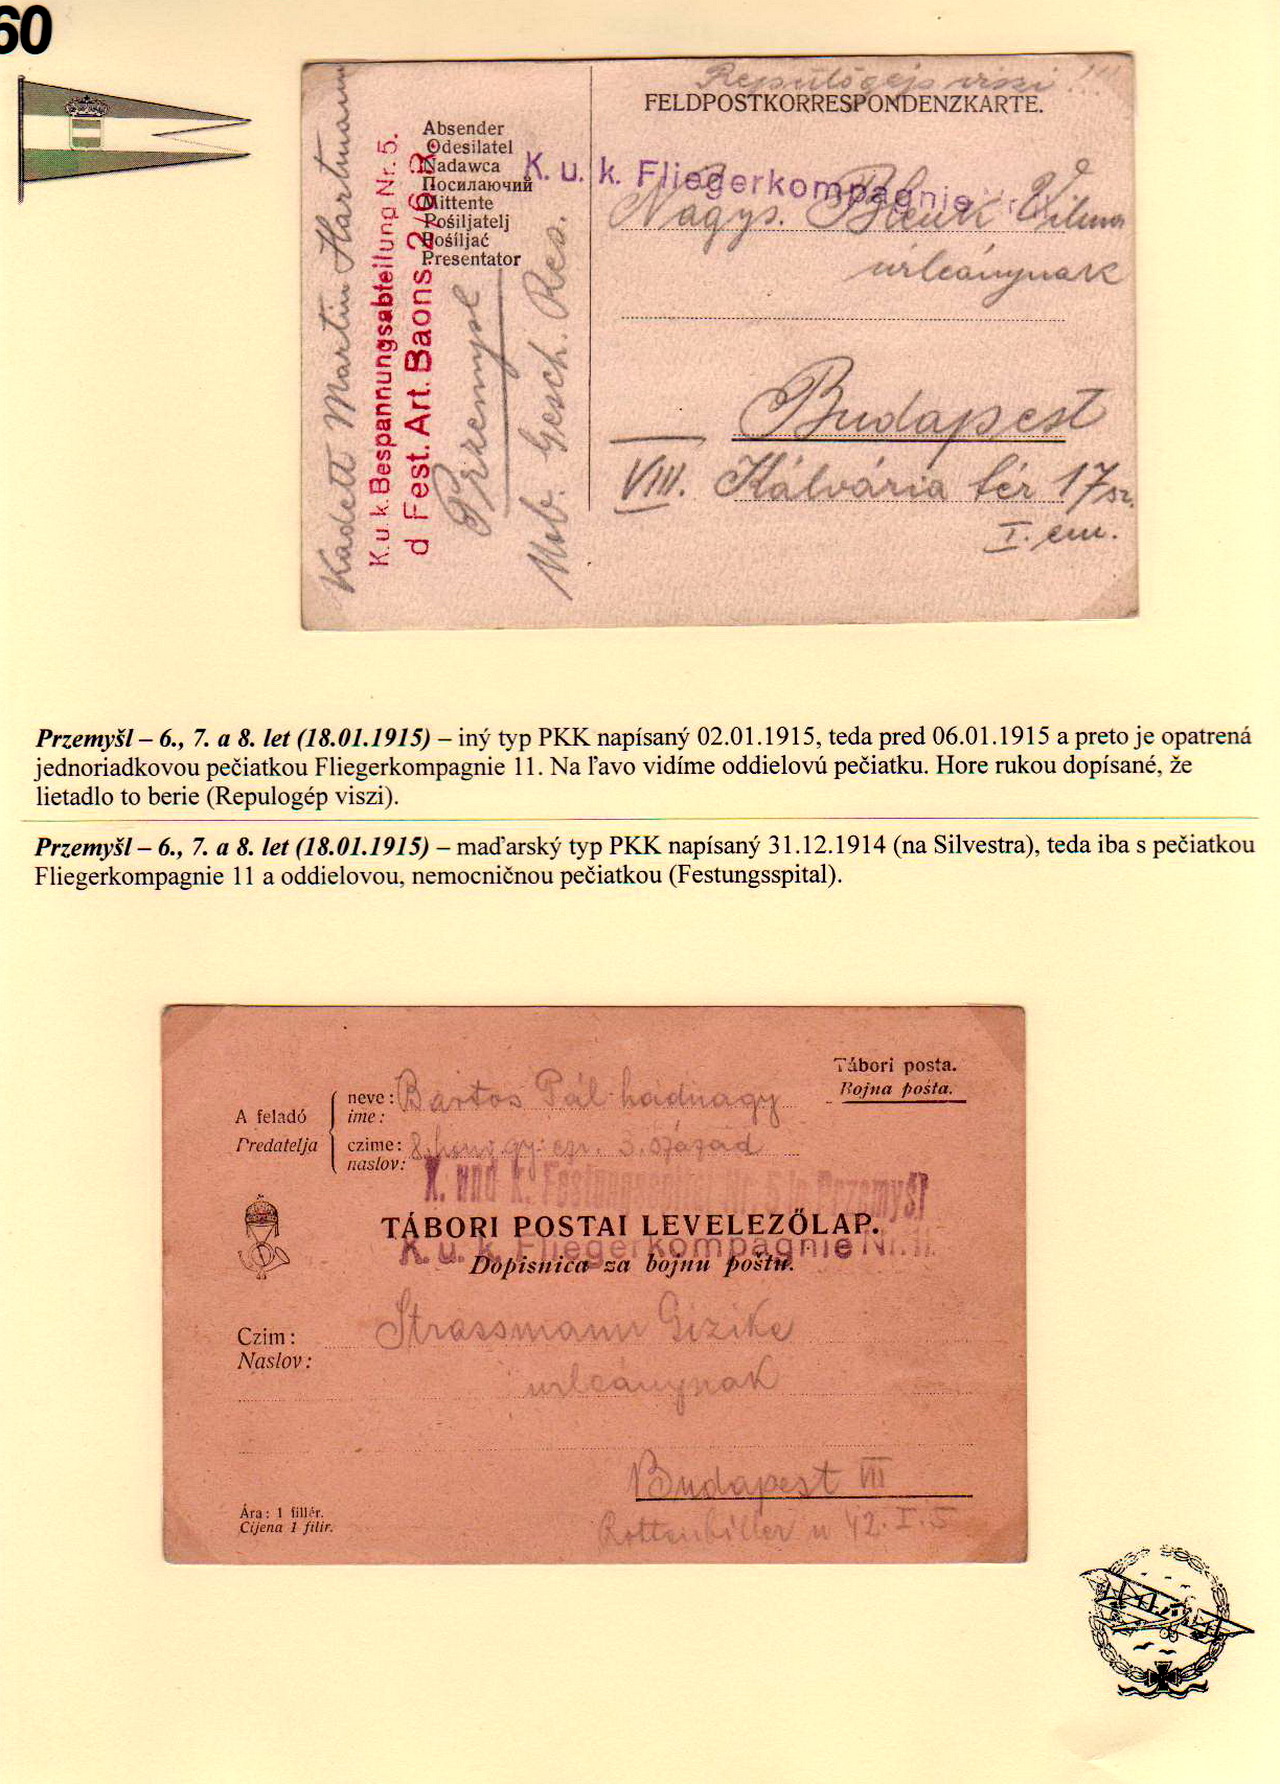 60
Repülőgép viszi !!!
FELDPOSTKORRESPONDENZKARTE.
Absender
Odesilatel
Nadawca
Посилаючий
Mittente
Pošiljatelj
Pošiljač
Presentator
Kadett Martin Hartmann
K. u. k. Bespannungsabteilung Nr. 5.
d Fest. Art. Baons 2/6 R.
Przemysl
Mob. Gesch. Res.
K. u. k. Fliegerkompagnie
Nagys. Vilma
urleánynak
Budapest
VIII. Kálvária tér 17 sz.
I. em.
Przemyšl – 6., 7. a 8. let (18.01.1915) – iný typ PKK napísaný 02.01.1915, teda pred 06.01.1915 a preto je opatrená
jednoriadkovou pečiatkou Fliegerkompagnie 11. Na ľavo vidíme oddielovú pečiatku. Hore rukou dopísané, že
lietadlo to berie (Repulogép viszi).
Przemyšl – 6., 7. a 8. let (18.01.1915) – maďarský typ PKK napísaný 31.12.1914 (na Silvestra), teda iba s pečiatkou
Fliegerkompagnie 11 a oddielovou, nemocničnou pečiatkou (Festungsspital).
Tábori posta.
Bojna pošta.
A feladó
Predatelja
neve: Bartos Pál hadnagy
ime:
czime: 8. honv. gy. ezr. 3. század
naslov:
K. und k. Festungsspital Nr. 5 in Przemyśl
TÁBORI POSTAI LEVELEZŐLAP.
K. u. k. Fliegerkompagnie Nr. 11.
Dopisnica za bojnu poštu.
Czim: Strassmann Gizike
Naslov:
urleánynak
Budapest VII
Rottenbiller u 42. I. 5
Ára: 1 fillér.
Cijena 1 filir.